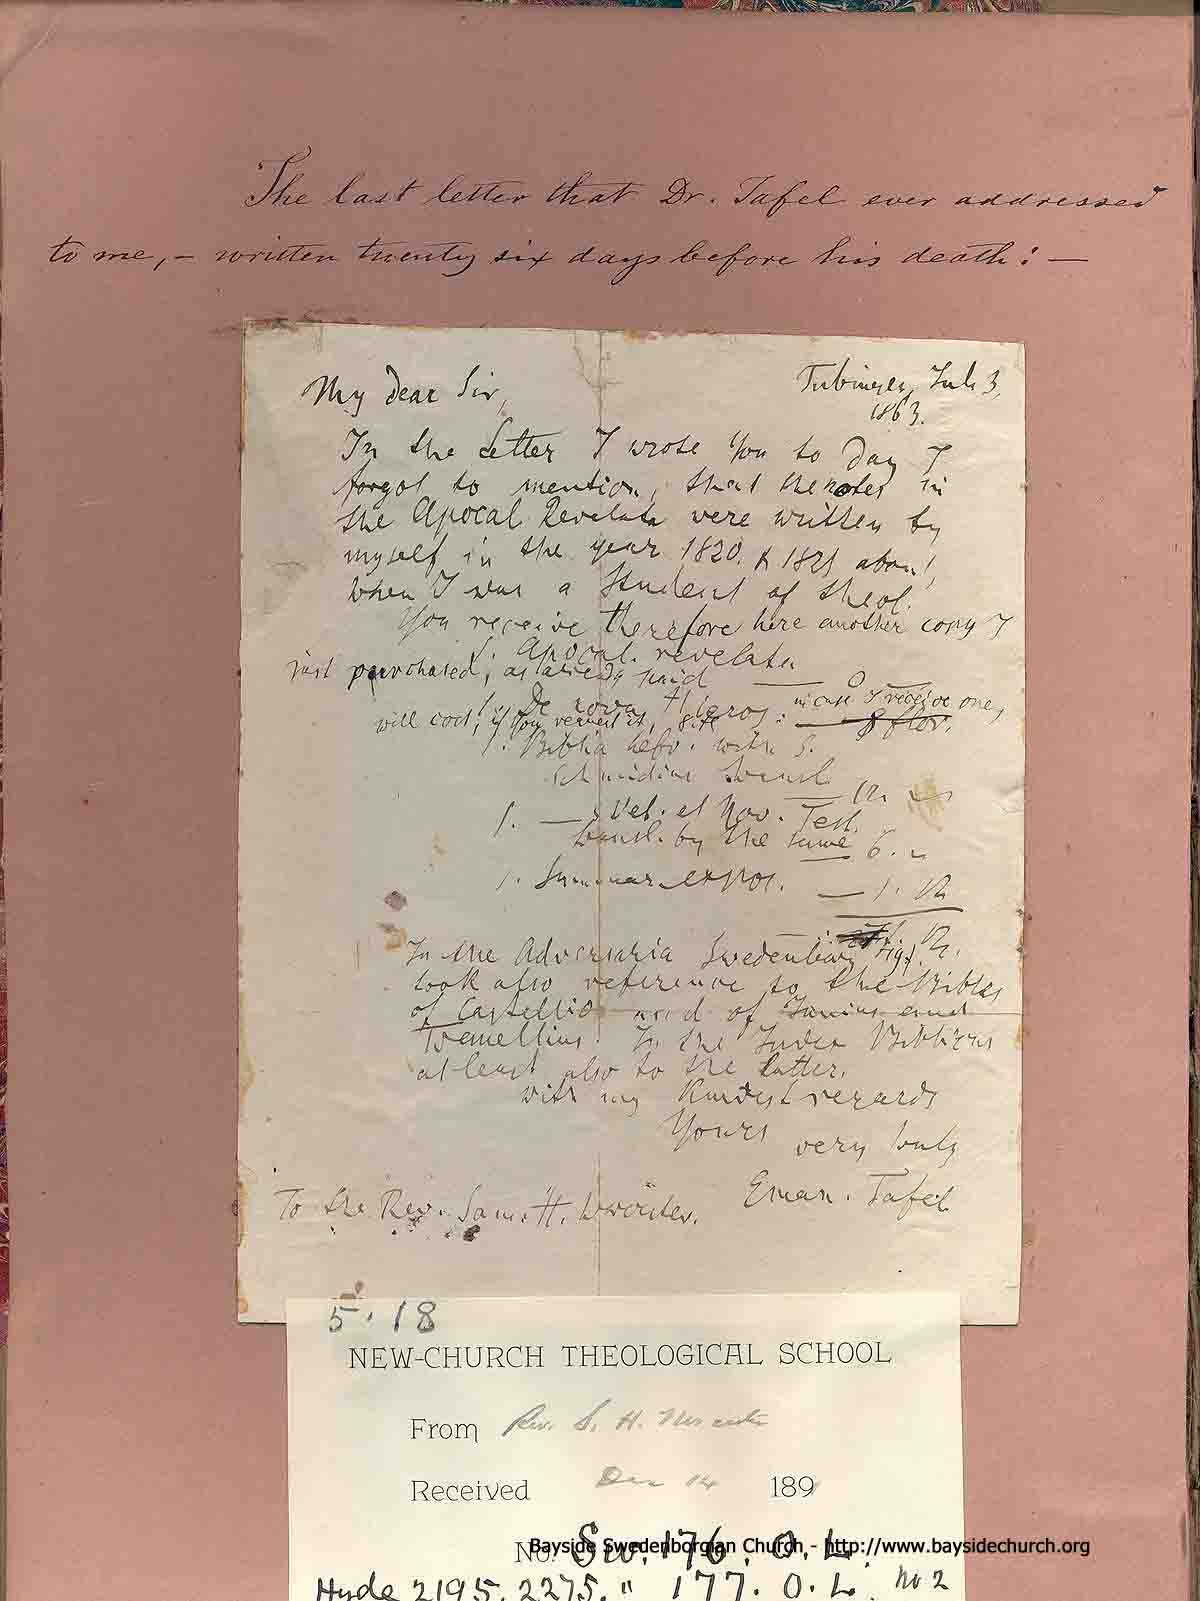 The last letter that Dr. Tafel ever addressed
to me, – written twenty six days before his death: —
My dear Sir,
Tubingen, July 3,
1863.
In the Letter I wrote You to Day I
forgot to mention, that the notes in
the Apocal. Revelata were written by
myself in the year 1820. & 1821 about,
when I was a Student of theol.
You receive therefore here another copy I
just purchased, as already said
1. Apocal. revelata
1. De nova Hieros: in case I receive one,
will cost, if You request it, 8 flor.
1. Biblia hebr. with S.
Schmidius transl.
1. — Vet. et Nov. Test.
transl. by the same — 6. "
1. Summar. expos. — 1. 12
In the Adversaria Swedenborg
took also reference to the Bibles
of Castellio and of Junius and
Tremellius. In the Index Biblicus
at least also to the latter.
with my kindest regards
Yours very truly
Eman. Tafel
To the Rev. Sam. H. Worcester.
5.18
NEW-CHURCH THEOLOGICAL SCHOOL
From Rev. S. H. Worcester
Received Dec 14 189
No. Sw. 176. O. L.
Bayside Swedenborgian Church - http://www.baysidechurch.org
Hyde 2195. 2275. " 177. O. L. No 2